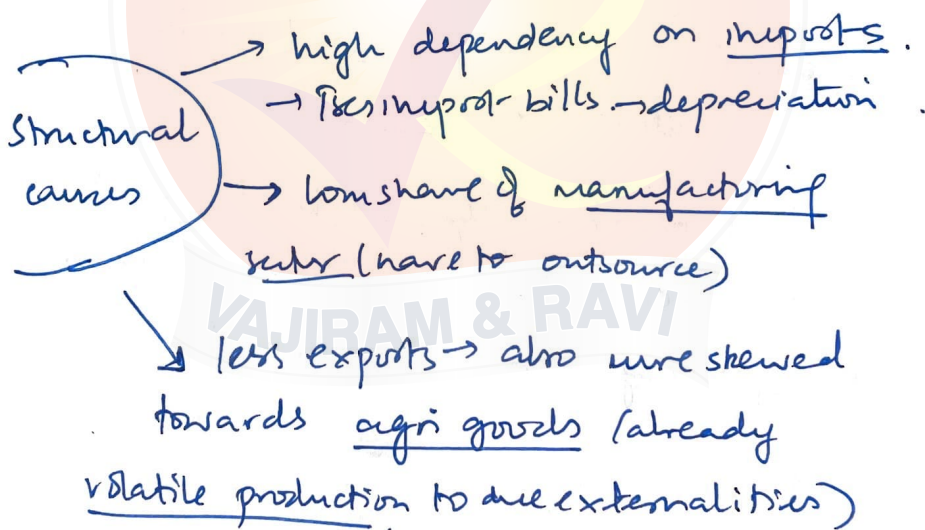 Structural
causes
→ high dependency on imports.
→ ↑ses import bills → depreciation.
→ low share of manufacturing
sector (have to outsource)
VAJIRAM & RAVI
↘ less exports → also more skewed
towards agri goods (already
volatile production to due externalities)